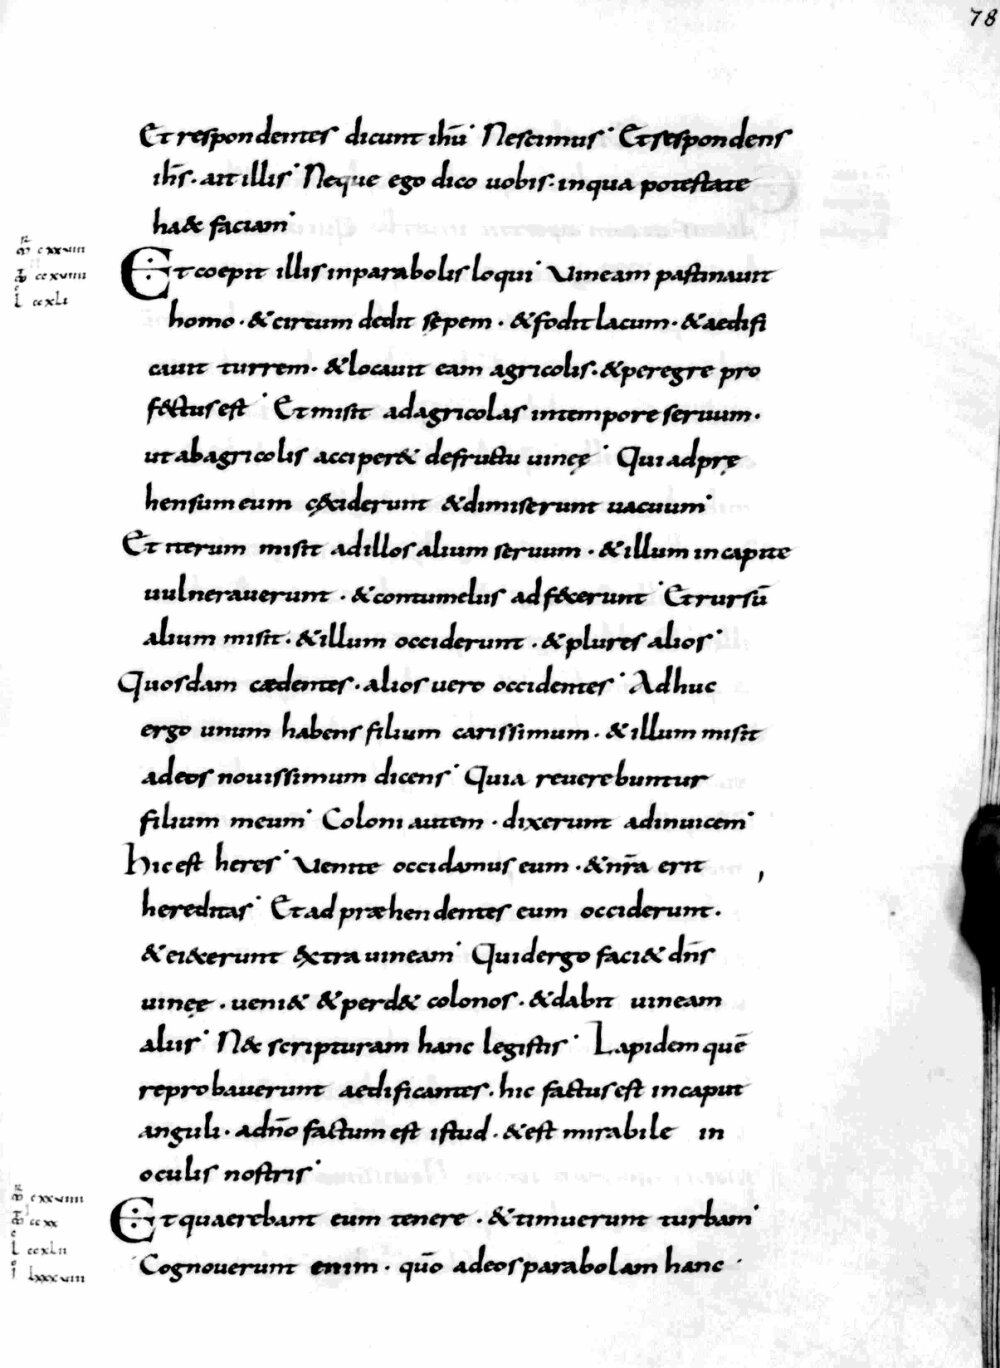 78
Et respondentes dicunt ihu̅ Nescimus Et respondens
ih̅s · ait illis Neque ego dico uobis · in qua potestate
haec faciam
Et coepit illis in parabolis loqui Vineam pastinauit
homo · & circum dedit sepem · & fodit lacum · & aedifi
cauit turrem · & locauit eam agricolis · & peregre pro
fectus est Et misit ad agricolas in tempore seruum ·
ut ab agricolis acciper& de fructu uineę Qui adprę
hensum eum cęciderunt & dimiserunt uacuum
Et iterum misit ad illos alium seruum · & illum in capite
uulnerauerunt · & contumeliis adfecerunt Et rursu̅
alium misit · & illum occiderunt · & plures alios
Quosdam caedentes · alios uero occidentes Adhuc
ergo unum habens filium carissimum · & illum misit
ad eos nouissimum dicens Quia reuerebuntur
filium meum Coloni autem · dixerunt ad inuicem
Hic est heres Venite occidamus eum · & nr̅a erit
hereditas Et adpraehendentes eum occiderunt ·
& eiecerunt extra uineam Quid ergo faci& dn̅s
uineę · ueni& & perd& colonos · & dabit uineam
aliis N& scripturam hanc legistis Lapidem que̅
reprobauerunt aedificantes · hic factus est in caput
anguli · a dn̅o factum est istud · & est mirabile in
oculis nostris
Et quaerebant eum tenere · & timuerunt turbam
Cognouerunt enim · quo̅ ad eos parabolam hanc